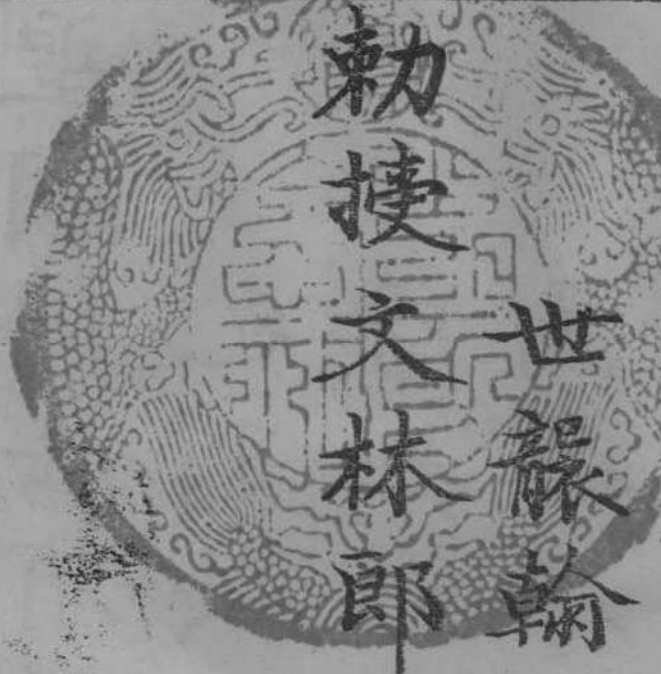 世襲翰
勅授文林郎